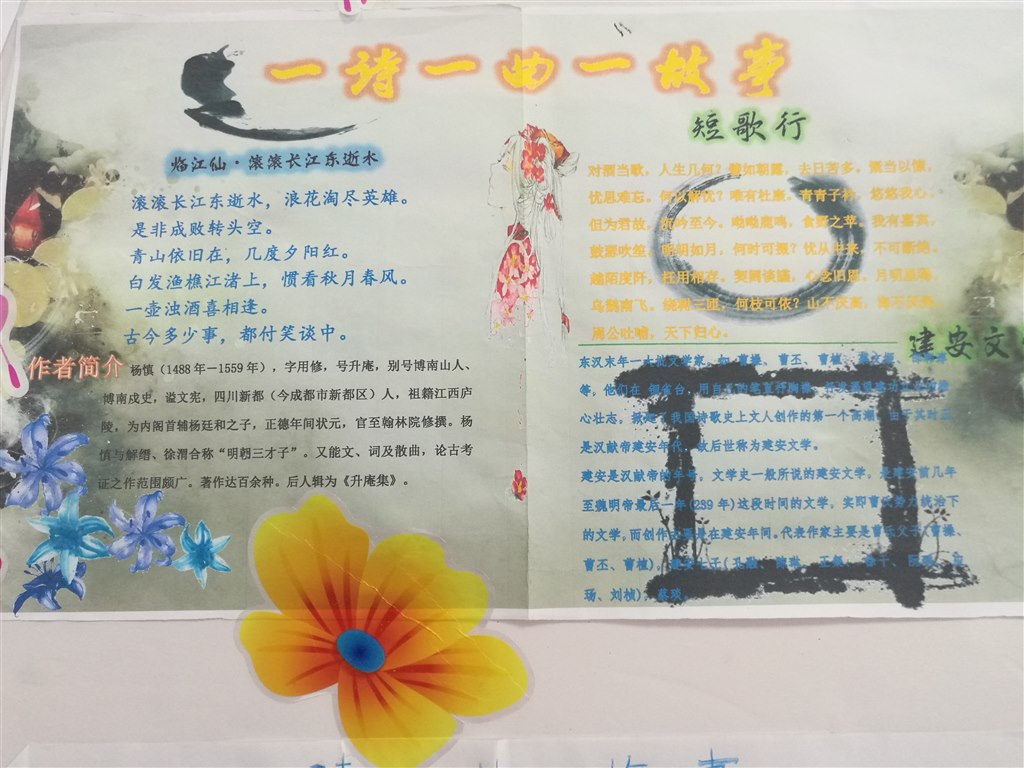 一诗一曲一故事
临江仙·滚滚长江东逝水
滚滚长江东逝水，浪花淘尽英雄。
是非成败转头空。
青山依旧在，几度夕阳红。
白发渔樵江渚上，惯看秋月春风。
一壶浊酒喜相逢。
古今多少事，都付笑谈中。
作者简介 杨慎（1488年—1559年），字用修，号升庵，别号博南山人、
博南戍史，谥文宪，四川新都（今成都市新都区）人，祖籍江西庐
陵，为内阁首辅杨廷和之子，正德年间状元，官至翰林院修撰。杨
慎与解缙、徐渭合称“明朝三才子”。又能文、词及散曲，论古考
证之作范围颇广。著作达百余种。后人辑为《升庵集》。
短歌行
对酒当歌，人生几何？譬如朝露，去日苦多。慨当以慷，
忧思难忘。何以解忧？唯有杜康。青青子衿，悠悠我心。
但为君故，沉吟至今。呦呦鹿鸣，食野之苹。我有嘉宾，
鼓瑟吹笙。明明如月，何时可掇？忧从中来，不可断绝。
越陌度阡，枉用相存。契阔谈讌，心念旧恩。月明星稀，
乌鹊南飞。绕树三匝，何枝可依？山不厌高，海不厌深。
周公吐哺，天下归心。
建安文
东汉末年一大批文学家，如 曹操、曹丕、曹植、
等，他们在 铜雀台，用自己的笔直抒胸襟，
心壮志，掀起了我国诗歌史上文人创作的第一个高潮。由于其时正
是汉献帝建安年代，故后世称为建安文学。
建安是汉献帝的年号，文学史一般所说的建安文学，是建安前几年
至魏明帝最后一年(239年)这段时间的文学，实即曹氏势力统治下
的文学，而创作主要是在建安年间。代表作家主要是曹氏父子(曹操、
曹丕、曹植)，建安七子(孔融、陈琳、王粲、徐干、阮瑀、应
玚、刘桢)，蔡琰。